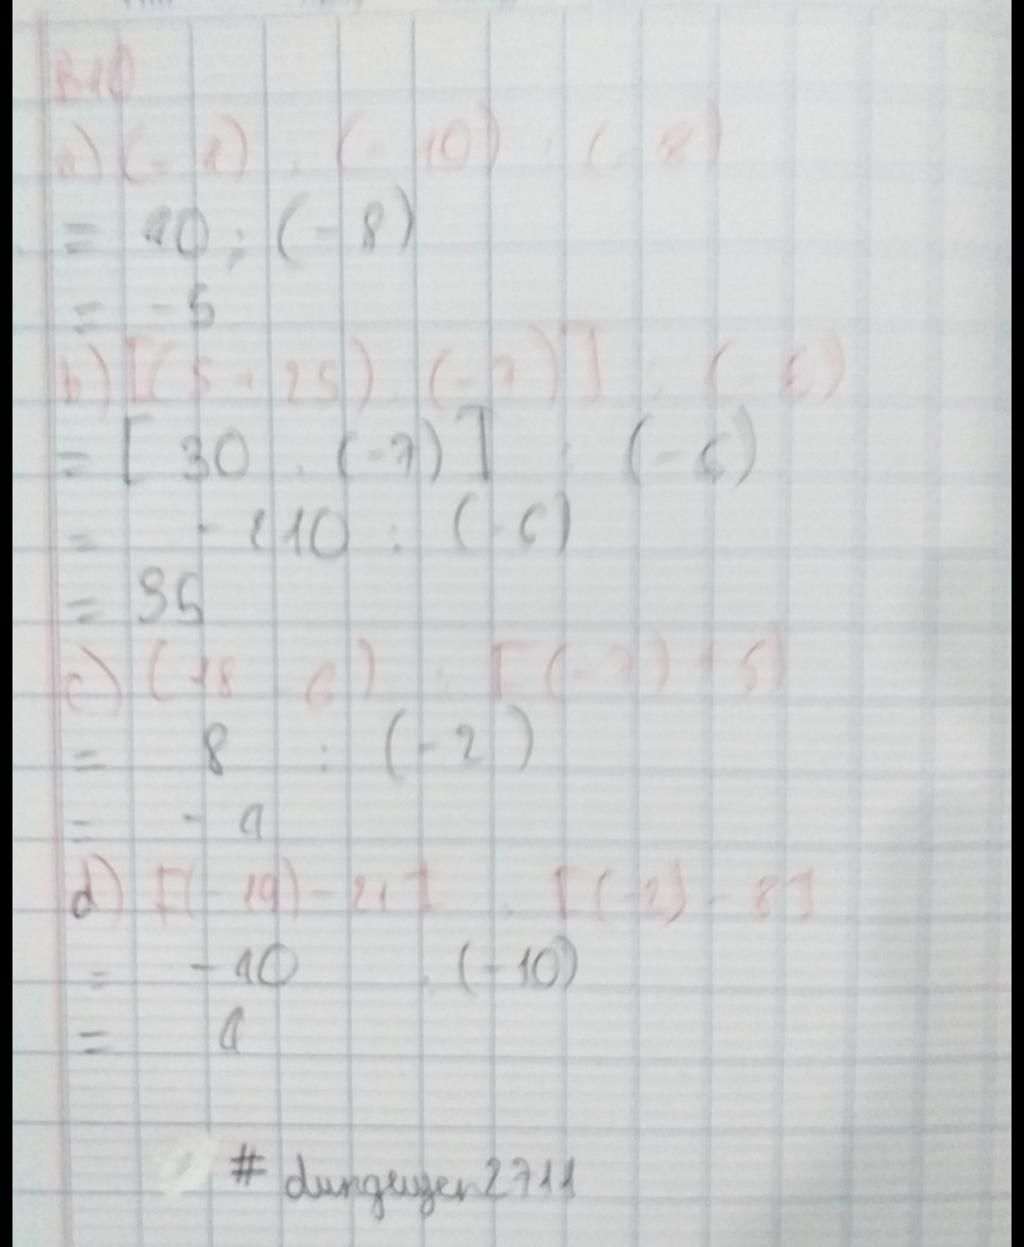 B10
a) (-1) . (-10) : (-8)
= 40 : (-8)
= -5
b) [(5 + 25) . (-7)] : (-6)
= [30 . (-7)] : (-6)
= -210 : (-6)
= 35
c) (18 6) : [(-7) + 5]
= 8 : (-2)
= -4
d) [(-19) - 21] : [(-2) - 8]
= -40 : (-10)
= 4